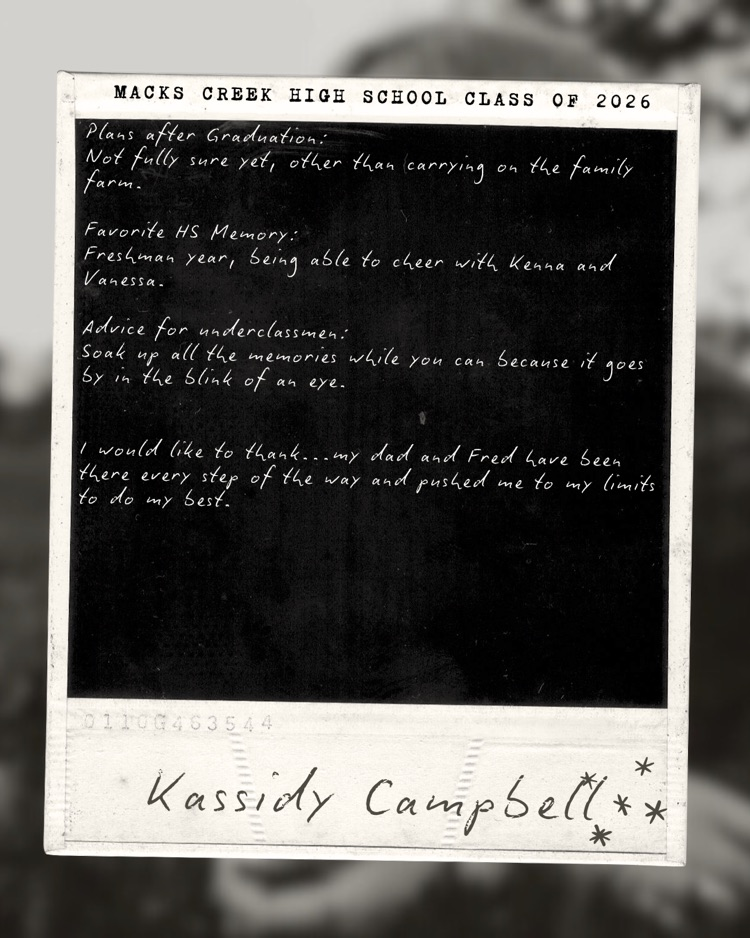 MACKS CREEK HIGH SCHOOL CLASS OF 2026
Plans after Graduation:
Not fully sure yet, other than carrying on the family
farm.
Favorite HS Memory:
Freshman year, being able to cheer with Kenna and
Vanessa.
Advice for underclassmen:
Soak up all the memories while you can because it goes
by in the blink of an eye.
I would like to thank...my dad and Fred have been
there every step of the way and pushed me to my limits
to do my best.
0110G463544
Kassidy Campbell